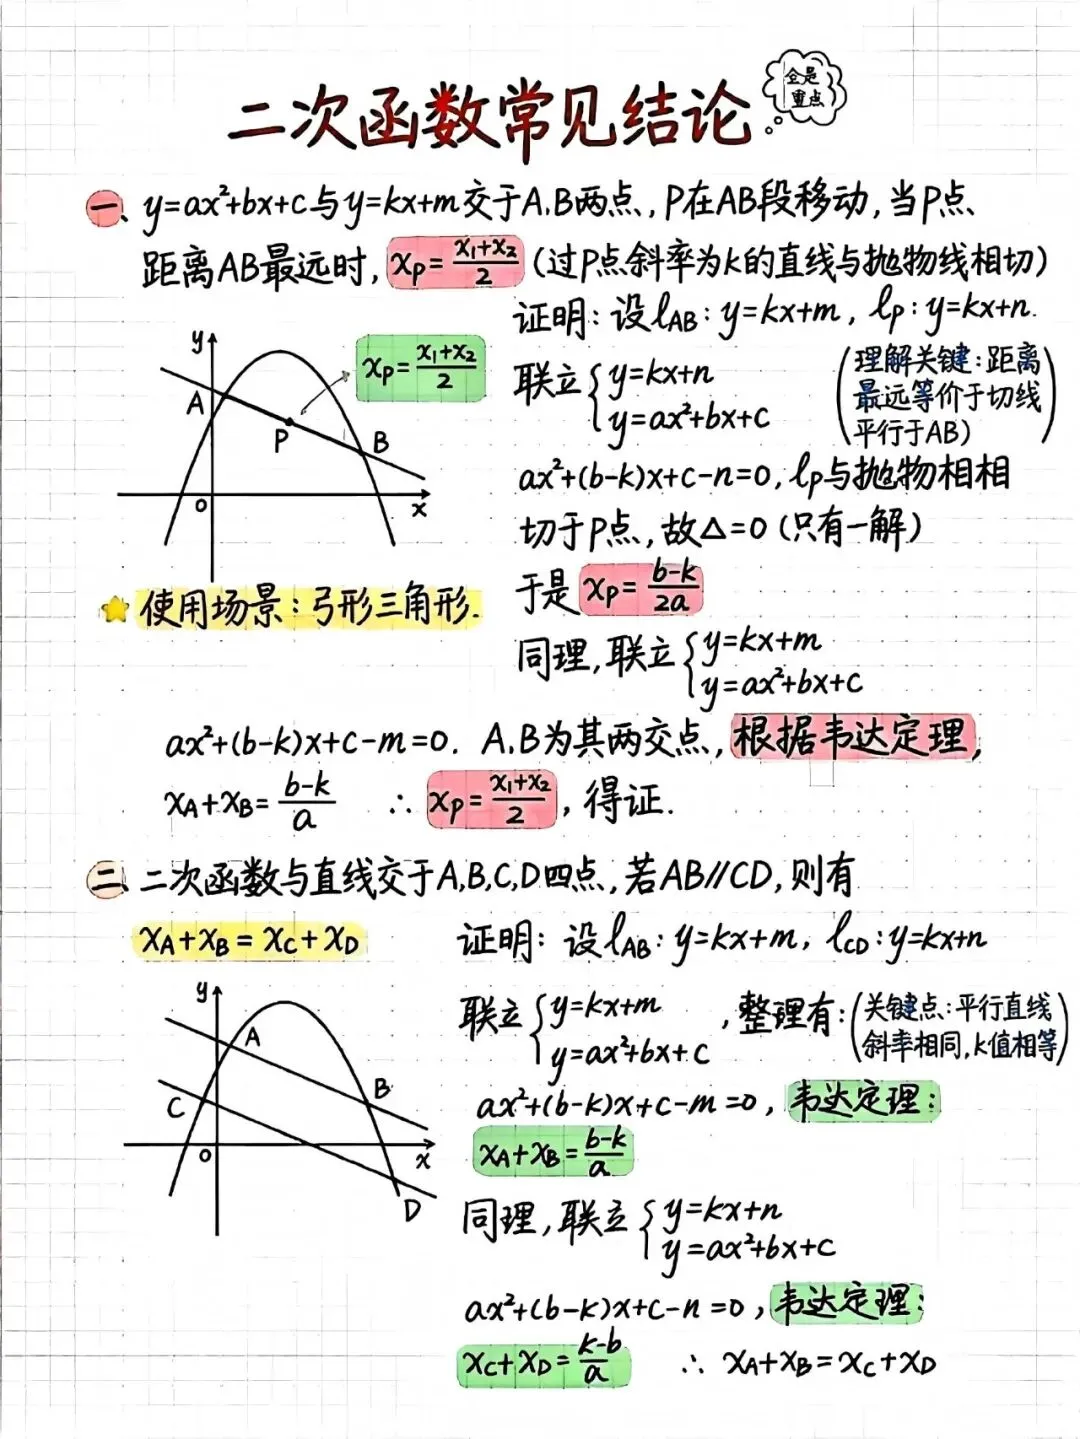 二次函数常见结论
全是
重点
一、y=ax²+bx+c与y=kx+m交于A.B两点，P在AB段移动，当P点
距离AB最远时，xP=(x₁+x₂)/2（过P点斜率为k的直线与抛物线相切）
证明：设lAB：y=kx+m，lP：y=kx+n.
y
xP=(x₁+x₂)/2
A
P
B
O
x
联立{y=kx+n
y=ax²+bx+c
（理解关键：距离
最远等价于切线
平行于AB）
ax²+(b-k)x+c-n=0，lP与抛物相相
切于P点，故△=0（只有一解）
于是xP=(b-k)/2a
使用场景：弓形三角形.
同理，联立{y=kx+m
y=ax²+bx+c
ax²+(b-k)x+c-m=0. A.B为其两交点，根据韦达定理，
xA+xB=(b-k)/a ∴xP=(x₁+x₂)/2，得证.
二、二次函数与直线交于A,B,C,D四点，若AB//CD，则有
xA+xB=xC+xD
证明：设lAB：y=kx+m，lCD：y=kx+n
y
A
B
C
O
x
D
联立{y=kx+m
y=ax²+bx+c
，整理有：
（关键点：平行直线
斜率相同，k值相等）
ax²+(b-k)x+c-m=0，韦达定理：
xA+xB=(b-k)/a
同理，联立{y=kx+n
y=ax²+bx+c
ax²+(b-k)x+c-n=0，韦达定理：
xC+xD=(k-b)/a ∴xA+xB=xC+xD